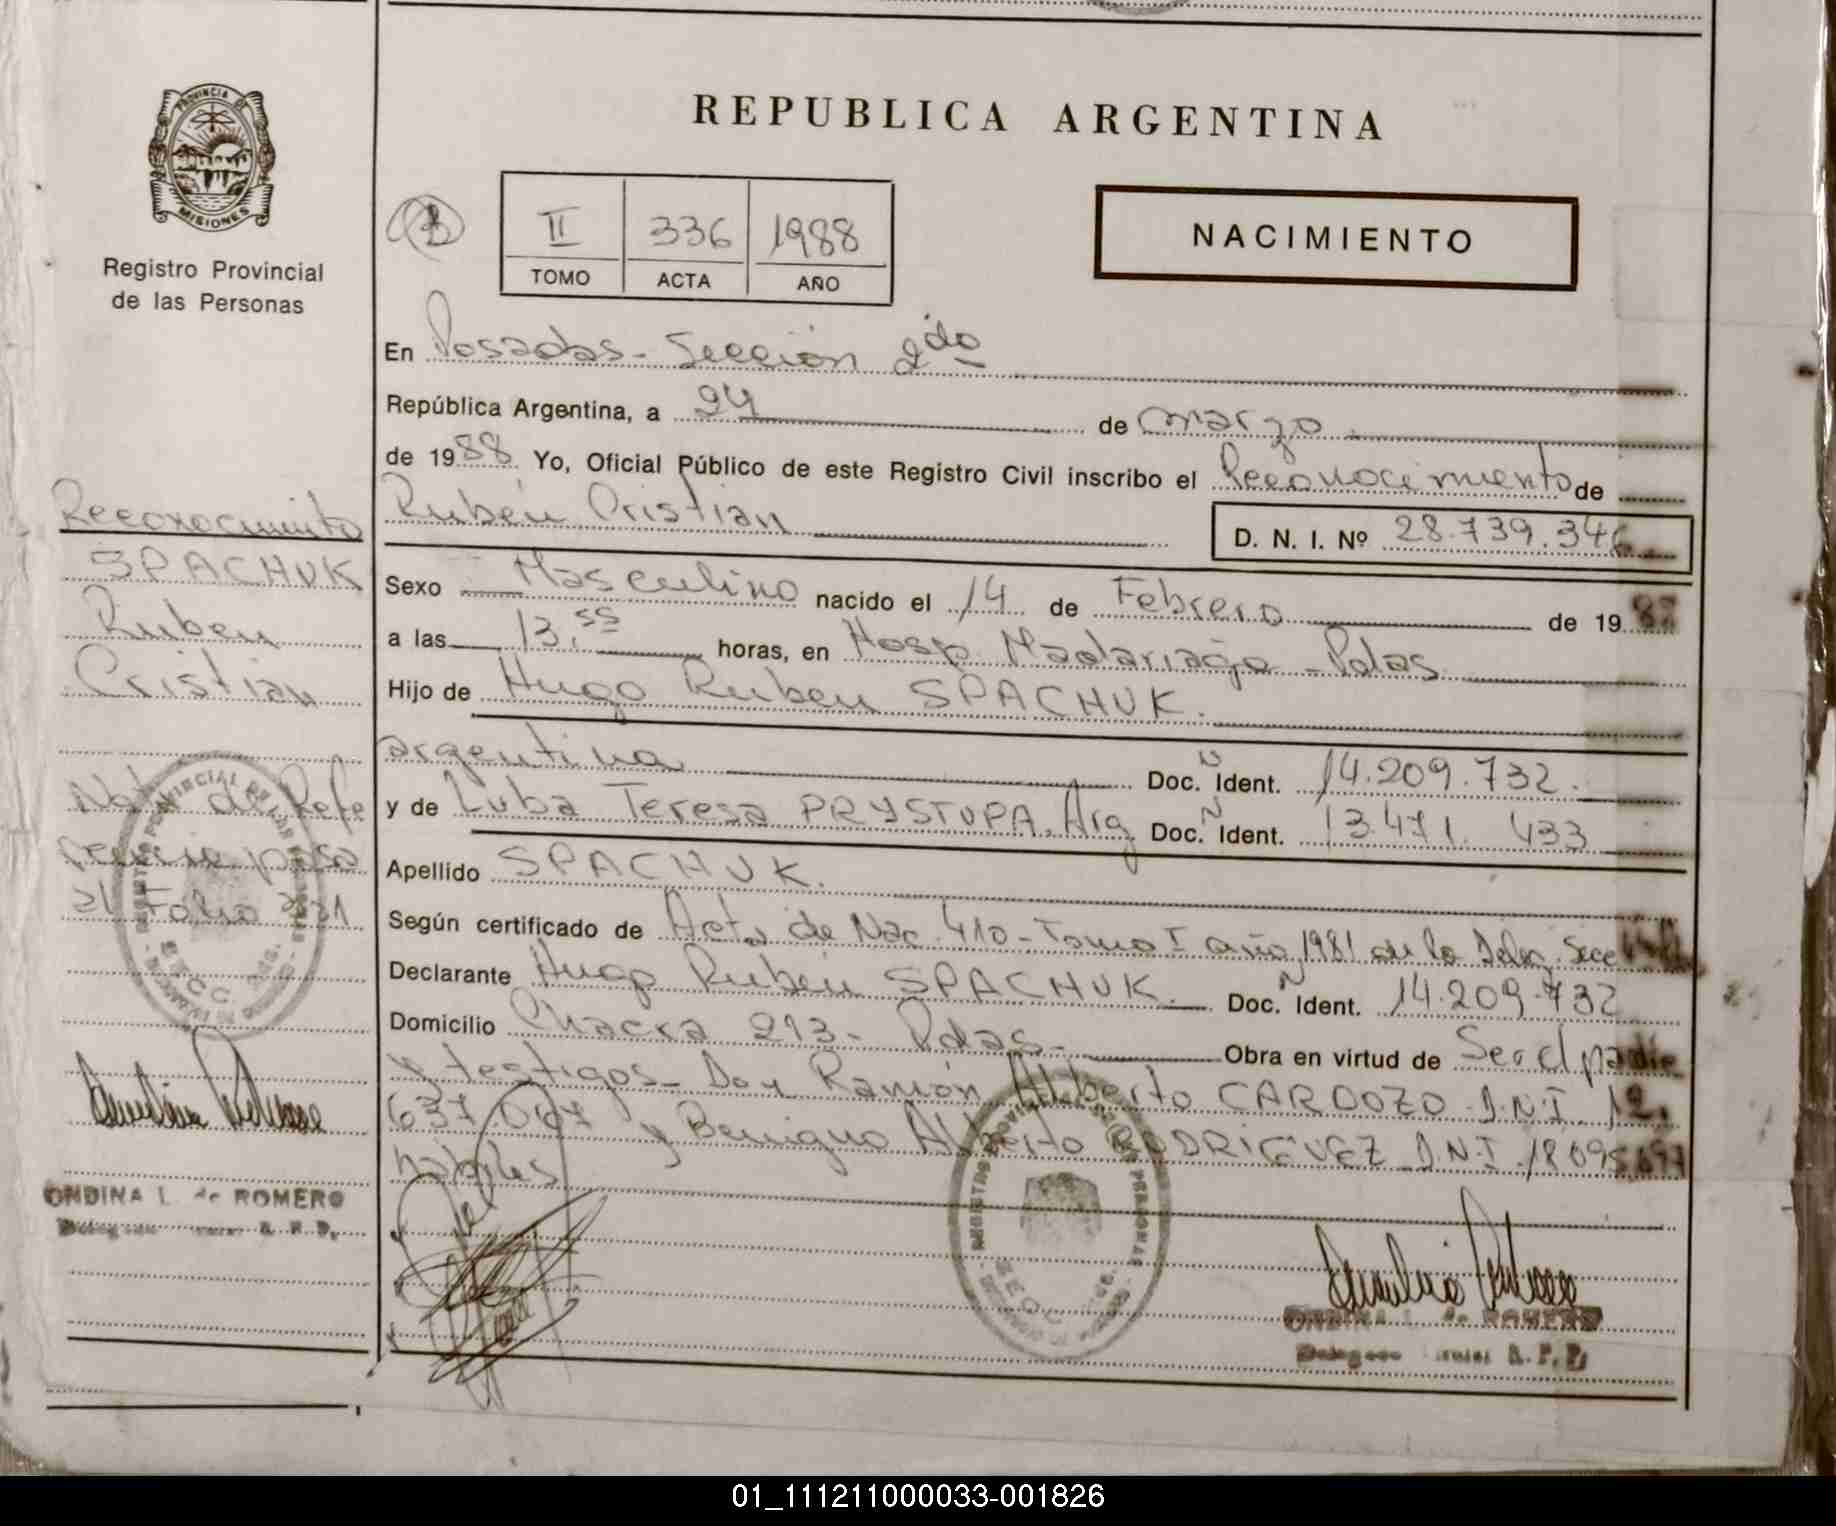 PROVINCIA DE
MISIONES
Registro Provincial
de las Personas
REPUBLICA ARGENTINA
II 336 1988
TOMO ACTA AÑO
NACIMIENTO
En Posadas - Sección 2do
República Argentina, a 24 de marzo
de 1988 Yo, Oficial Público de este Registro Civil inscribo el Reconocimiento de
Rubén Cristian
D. N. I. Nº 28.739.346
Sexo Masculino nacido el 14 de Febrero de 19
a las 13, horas, en Hosp. Madariaga - Pdas
Hijo de Hugo Ruben SPACHUK.
argentina Doc. N Ident. 14.209.732.
y de Luba Teresa PRYSTUPA. Arg Doc. N Ident. 13.471.433
Apellido SPACHUK.
Según certificado de Acta de Nac. 410 - Tomo I año 1981 de la Deleg. Secc
Declarante Hugo Rubén SPACHUK. Doc. N Ident. 14.209.732
Domicilio Chacra 213 - Pdas - Obra en virtud de Ser el padre
y testigos - Don Ramón Alberto CARDOZO D.N.I. 12.
637.047 y Benigno Alberto RODRIGUEZ D.N.I.
hábiles
Reconocimiento
SPACHUK
Ruben
Cristian
Nota de Refe
rencia pasa
al Folio 331
ONDINA L. de ROMERO
ONDINA L. de ROMERO
01_111211000033-001826